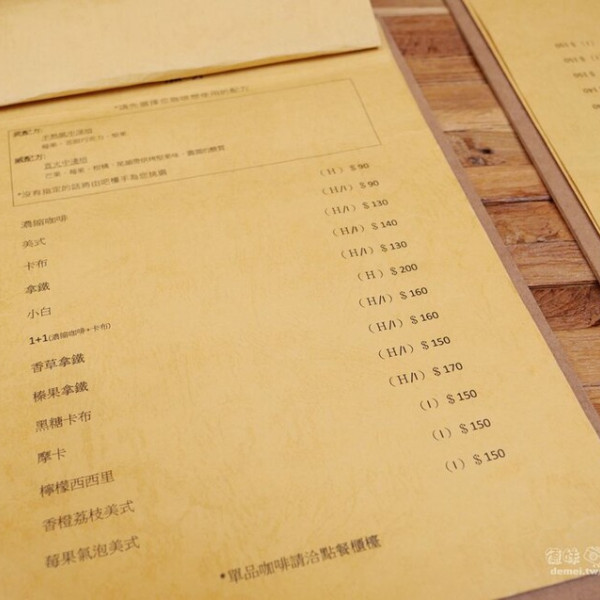 *請先選擇在咖啡想使用的配方
配方:
莓果、苦甜巧克力、堅果
配方:
芒果、莓果、柑橘、尾韻帶烘烤堅果味、
*沒有指定的話將由吧檯手為您挑選
濃縮咖啡 (H) $90
美式 (H/I) $90
卡布 (H/I) $130
拿鐵 (H/I) $140
小白 (H/I) $130
1+1(濃縮咖啡+卡布) (H) $200
香草拿鐵 (H/I) $160
榛果拿鐵 (H/I) $160
黑糖卡布 (H/I) $150
摩卡 (H/I) $170
檸檬西西里 (I) $150
香橙荔枝美式 (I) $150
莓果氣泡美式 (I) $150
*單品咖啡請洽點餐櫃檯
demei.tw